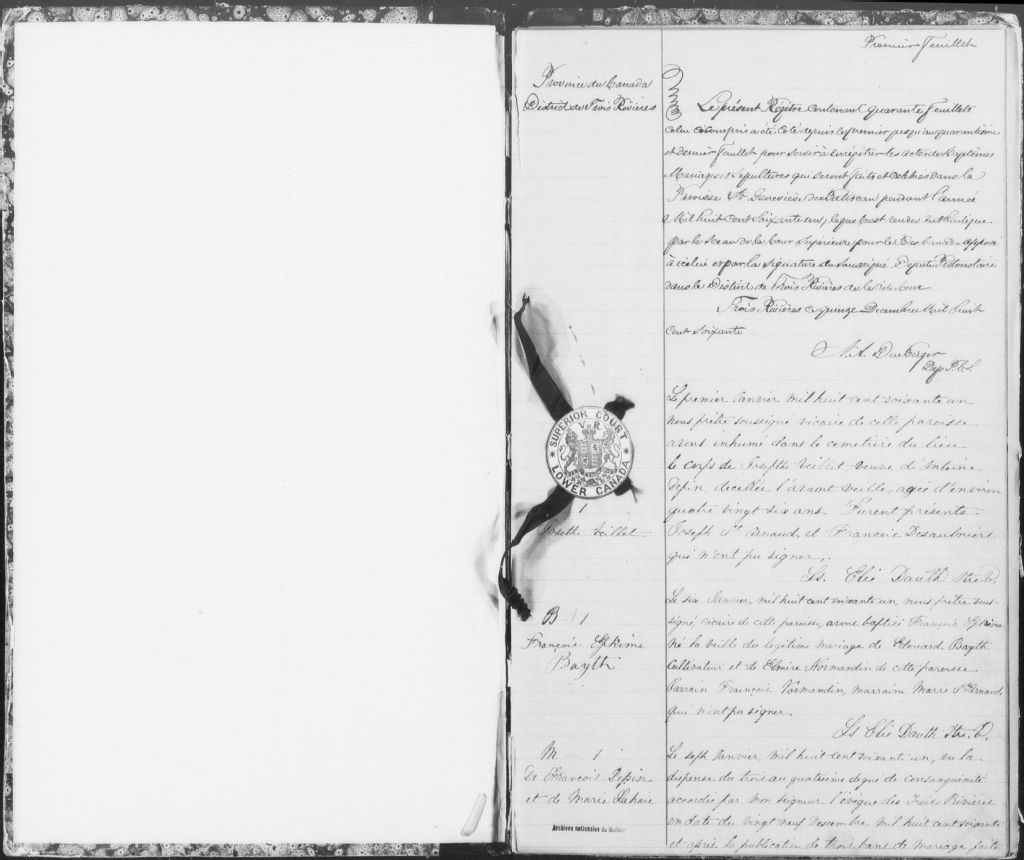 Premier Feuillet
Province du Canada
District de Trois Rivières
Le présent Régitre contenant quarante Feuillets
celui ci compris a été coté depuis le premier jusqu'au quarantième
et dernier Feuillet pour servir à enrégitrer les actes de Baptêmes
Mariages et Sépultures qui seront faits et célébrés dans la
Paroisse Ste Geneviève de Batiscan pendant l'année
Mil huit cent soixante un, lequel est rendu authentique
par le Sceau de la Cour Supérieure pour le Bas Canada apposé
à icelui et par la signature du Soussigné Député Protonotaire
dans le District de Trois Rivières de la dite Cour
Trois Rivières ce quinze Decembre Mil huit
cent soixante
Dep P.C.S.
SUPERIOR COURT
V R
LOWER CANADA
1
Josethe Veillet
Le premier Janvier mil huit cent soixante un
nous prêtre soussigné vicaire de cette paroisse
avons inhumé dans le cemetière du lieu
le corps de Josephe Veillet veuve d'Antoine
Depin décédée l'avant veille, agée d'environ
quatre vingt six ans. Furent présents
Joseph St Arnaud, et François Desaulniers
qui n'ont pu signer.
Ls. Elie Dauth Ptre V.
B 1
François
Bayth
Le six Janvier, mil huit cent soixante un, nous prêtre sous-
signé vicaire de cette paroisse, avons baptisé François
né la veille du légitime mariage de Edouard Bayth
Cultivateur et de Elmire Normandin de cette paroisse
Parrain François Normandin, marraine Marie St Arnaud,
qui n'ont pu signer.
Ls Elie Dauth Ptre. V.
M 1
De François Depin
et de Marie Lahaie
Le sept Janvier mil huit cent soixante un, vu la
dispense du trois au quatrième degré de consanguinité
accordée par mon seigneur l'évêque des Trois Rivières
en date du vingt neuf Decembre mil huit cent soixante
et après la publication de trois bans de mariage faite
Archives nationales du Québec